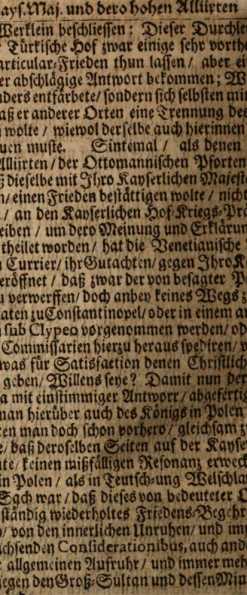 ays. Maj. und dero hohen Alliirten
Werklein beschliessen: Dieser Durchle
Türkische Hof zwar einige sehr vorth
articular-Frieden thun lassen/ aber ei
er abschlägige Antwort bekommen; W
nders entfärbete/ sondern sich selbsten mit
aß er anderer Orten eine Trennung de
wolte/ wiewol derselbe auch hierinnen
uen muste. Sintemal/ als denen
Alliirten/ der Ottomannischen Pforten
ß dieselbe mit Ihro Kayserlichen Majest
n/ einen Frieden bestättigen wolte/ nicht
/ an den Kayserlichen Hof-Kriegs-Pr
eiben/ um dero Meinung und Erklärun
theilet worden/ hat die Venetianische
Currier/ ihr Gutachten/ gegen Ihro K
eröffnet/ daß zwar der von besagter P
u verwerffen/ doch anbey keines Wegs z
aten zu Constantinopel/ oder in einem a
sub Clypeo vorgenommen werden/ od
Commissarien hierzu heraus spediren/ v
was für Satisfaction denen Christlich
geben/ Willens seye? Damit nun der
a mit einstimmiger Antwort/ abgefertig
an hierüber auch des Königs in Polen
en man doch schon vorhero/ gleichsam z
e/ daß deroselben Seiten auf der Kayse
te/ keinen mißfälligen Resonanz erweck
n Polen/ als in Teutsch- und Welschla
Sach war/ daß dieses von bedeuteter
ständig wiederholtes Friedens-Begehr
/ von den innerlichen Unruhen/ und im
chsenden Considerationibus, auch and
allgemeinen Aufruhr/ und immer meh
egen den Groß-Sultan und dessen Min